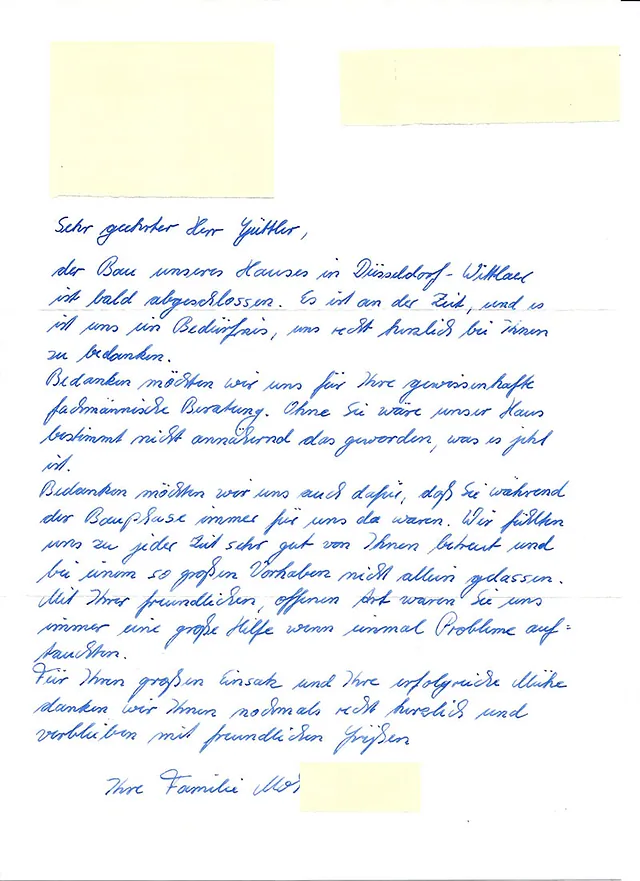 Sehr geehrter Herr Güttler,
der Bau unseres Hauses in Düsseldorf-Wittlaer
ist bald abgeschlossen. Es ist an der Zeit, und es
ist uns ein Bedürfnis, uns recht herzlich bei ihnen
zu bedanken.
Bedanken möchten wir uns für Ihre gewissenhafte
fachmännische Beratung. Ohne Sie wäre unser Haus
bestimmt nicht annähernd das geworden, was es jetzt
ist.
Bedanken möchten wir uns auch dafür, daß Sie während
der Bauphase immer für uns da waren. Wir fühlten
uns zu jeder Zeit sehr gut von Ihnen betreut und
bei einem so großen Vorhaben nicht allein gelassen.
Mit Ihrer freundlichen, offenen Art waren Sie uns
immer eine große Hilfe wenn einmal Probleme auf=
tauchten.
Für Ihren großen Einsatz und Ihre erfolgreiche Mühe
danken wir Ihnen nochmals recht herzlich und
verblieben mit freundlichen Grüßen
Ihre Familie